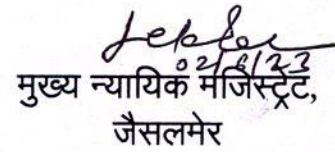 02/6/23
मुख्य न्यायिक मजिस्ट्रेट,
जैसलमेर